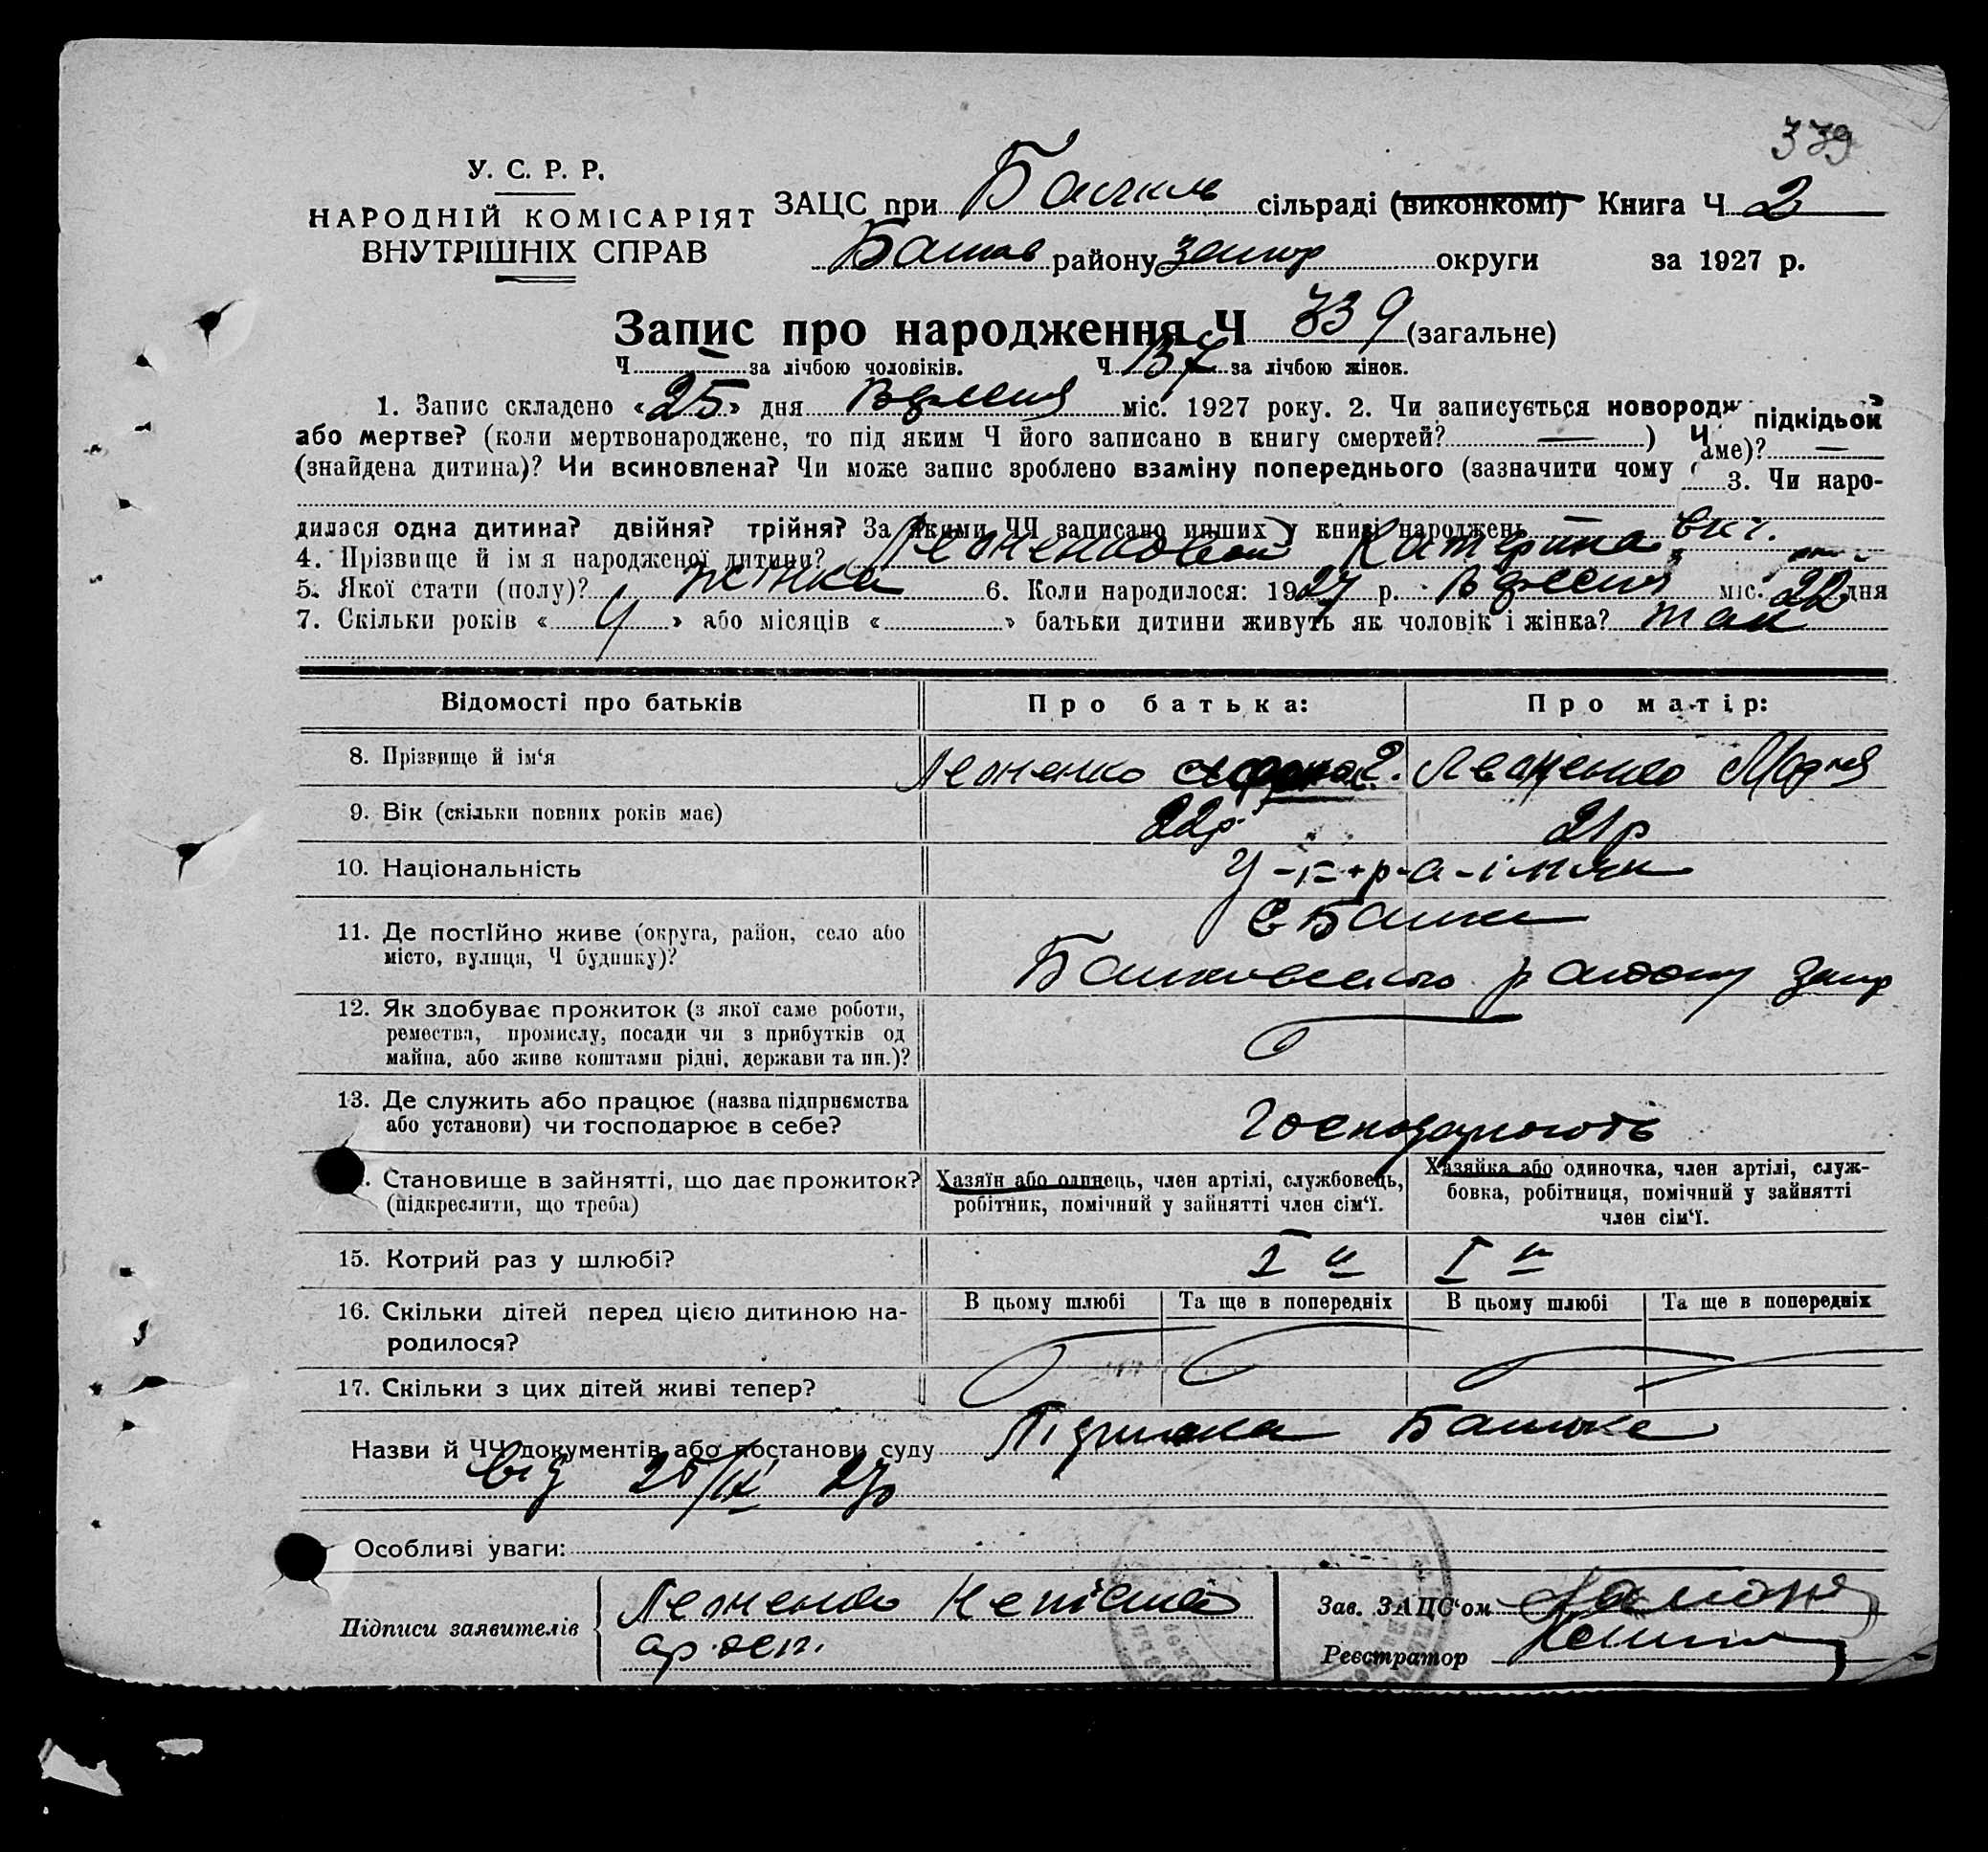 339
У. С. Р. Р.
НАРОДНІЙ КОМІСАРІЯТ
ВНУТРІШНІХ СПРАВ
ЗАЦС при сільраді (виконкомі) Книга Ч 2
району Запор округи за 1927 р.
Запис про народження Ч 339 (загальне)
Ч — за лічбою чоловіків. Ч 137 за лічбою жінок.
1. Запис складено «25» дня Вересня міс. 1927 року. 2. Чи записується новородж підкідьок
або мертве? (коли мертвонароджене, то під яким Ч його записано в книгу смертей? — ) Ч
(знайдена дитина)? Чи всиновлена? Чи може запис зроблено взаміну попереднього (зазначити чому саме)? —
3. Чи наро-
дилася одна дитина? двійня? трійня? За якими ЧЧ записано инших у книзі народжень —
4. Прізвище й ім'я народженої дитини? Катерина
5. Якої стати (полу)? жінка 6. Коли народилося: 1927 р. Вересня міс. 22 дня
7. Скільки років « » або місяців « » батьки дитини живуть як чоловік і жінка? так
Відомості про батьків Про батька: Про матір:
8. Прізвище й ім'я
9. Вік (скільки повних років має) 22р 21р
10. Національність У-к-р-а-їнян
11. Де постійно живе (округа, район, село або
місто, вулиця, Ч будинку)? району Запор
12. Як здобуває прожиток (з якої саме роботи,
ремества, промислу, посади чи з прибутків од
майна, або живе коштами рідні, держави та ин.)?
13. Де служить або працює (назва підприємства
або установи) чи господарює в себе? Господарюють
. Становище в зайнятті, що дає прожиток?
(підкреслити, що треба)
Хазяїн або одинець, член артілі, службовець,
робітник, помічний у зайнятті член сім'ї.
Хазяйка або одиночка, член артілі, служ-
бовка, робітниця, помічний у зайнятті
член сім'ї.
15. Котрий раз у шлюбі? І й І й
16. Скільки дітей перед цією дитиною на-
родилося?
В цьому шлюбі Та ще в попередніх В цьому шлюбі Та ще в попередніх
17. Скільки з цих дітей живі тепер?
Назви й ЧЧ документів або постанови суду
від 25/ІХ 27р
Особливі уваги:
Підписи заявителів
Зав. ЗАЦС'ом
Реєстратор